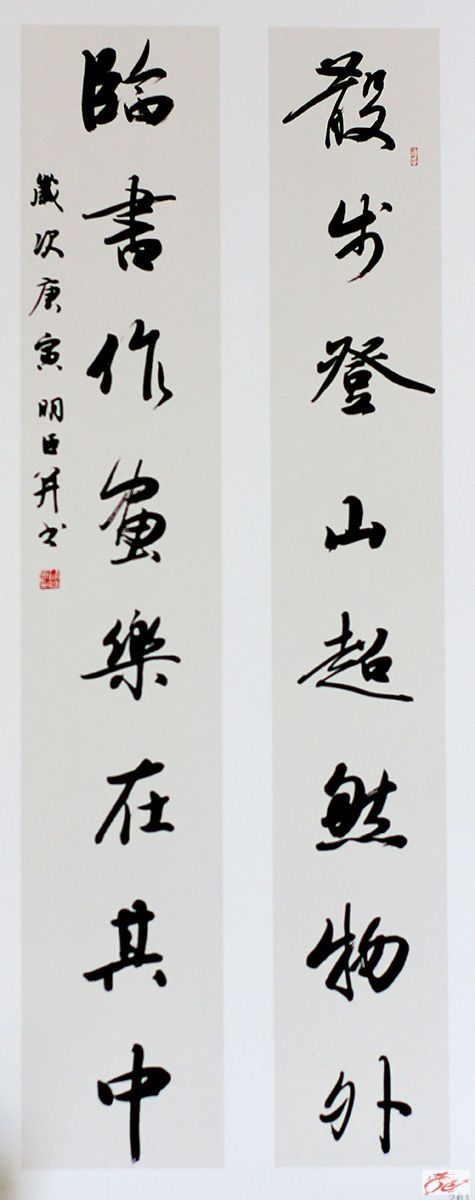 散步登山超然物外
臨書作畫樂在其中
歲次庚寅明臣并书